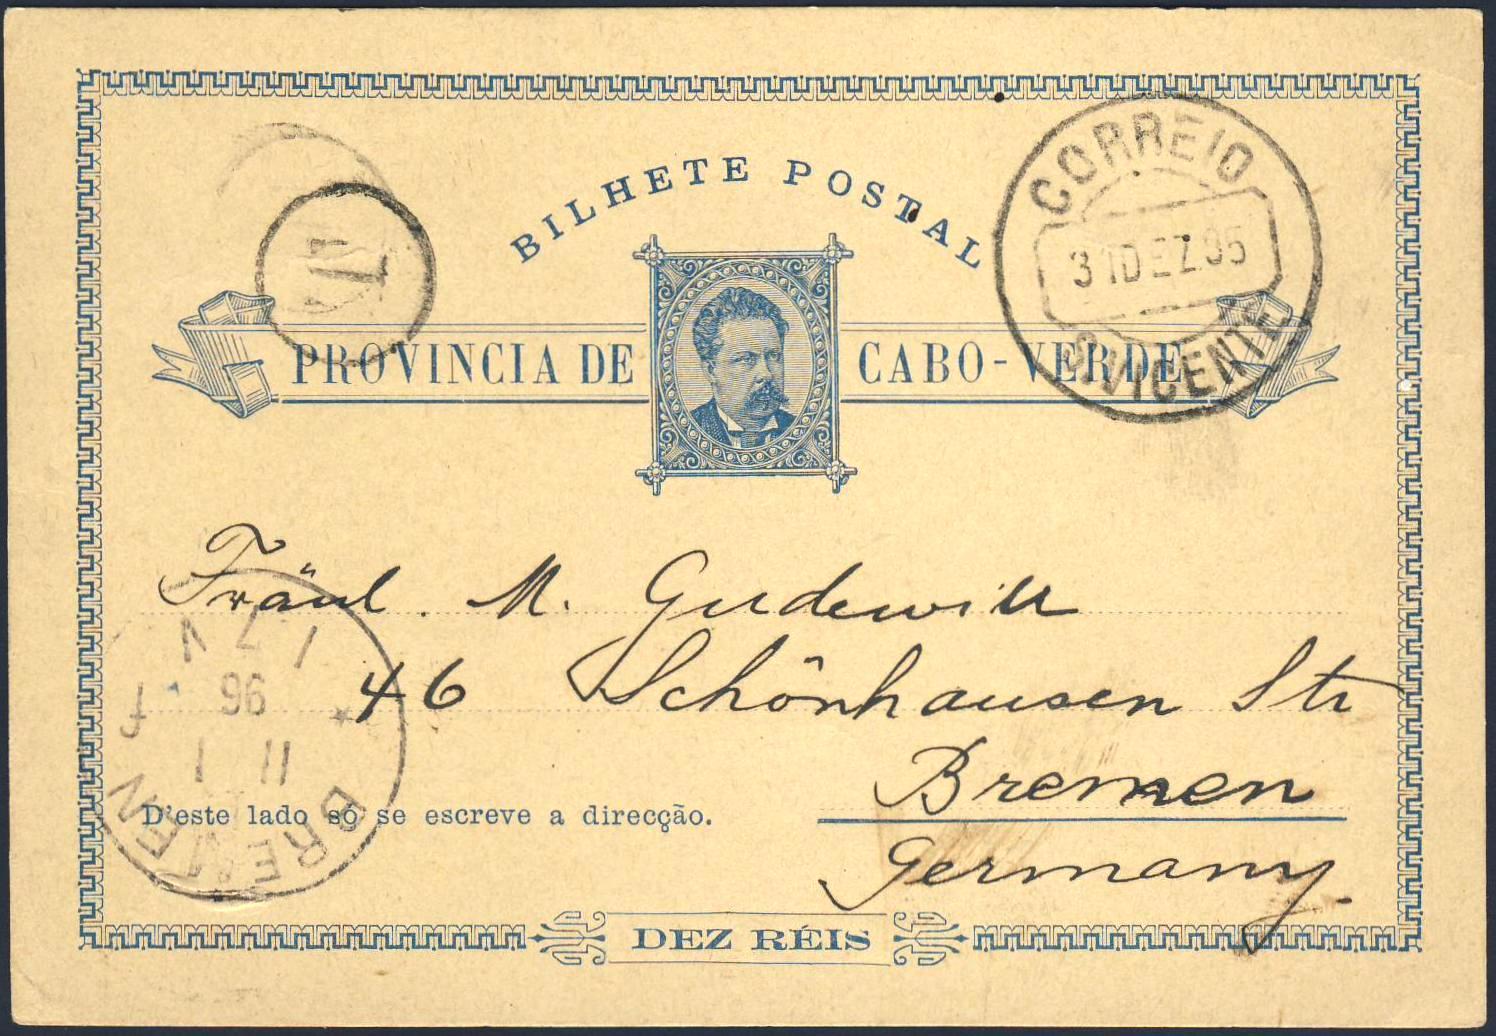 BILHETE POSTAL
CORREIO
31 DEZ 95
S. VICENTE
PROVINCIA DE CABO-VERDE
Fräul. M. Gudewill
46 Schönhausen Str
Bremen
Germany.
D'este lado só se escreve a direcção.
BREMEN
11 1
96
DEZ RÉIS